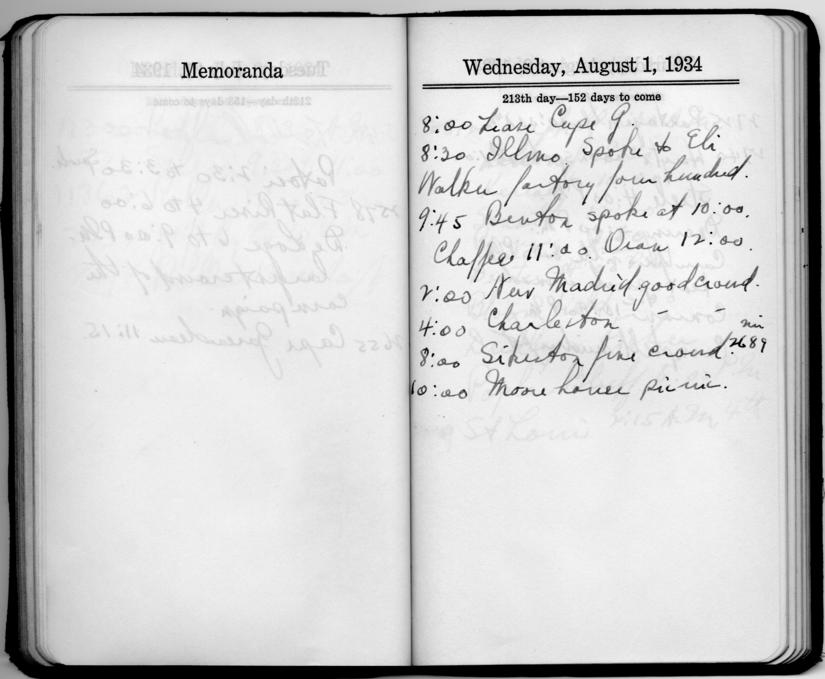 Memoranda
Wednesday, August 1, 1934
213th day—152 days to come
8:00 Leave Cape G.
8:30 Illmo Spoke to Eli
Walker factory four hundred.
9:45 Benton spoke at 10:00.
Chaffee 11:00. Oran 12:00.
2:00 New Madrid good crowd.
4:00 Charleston " "
8:00 Sikeston fine crowd. 2689
10:00 Moorehouse picnic.